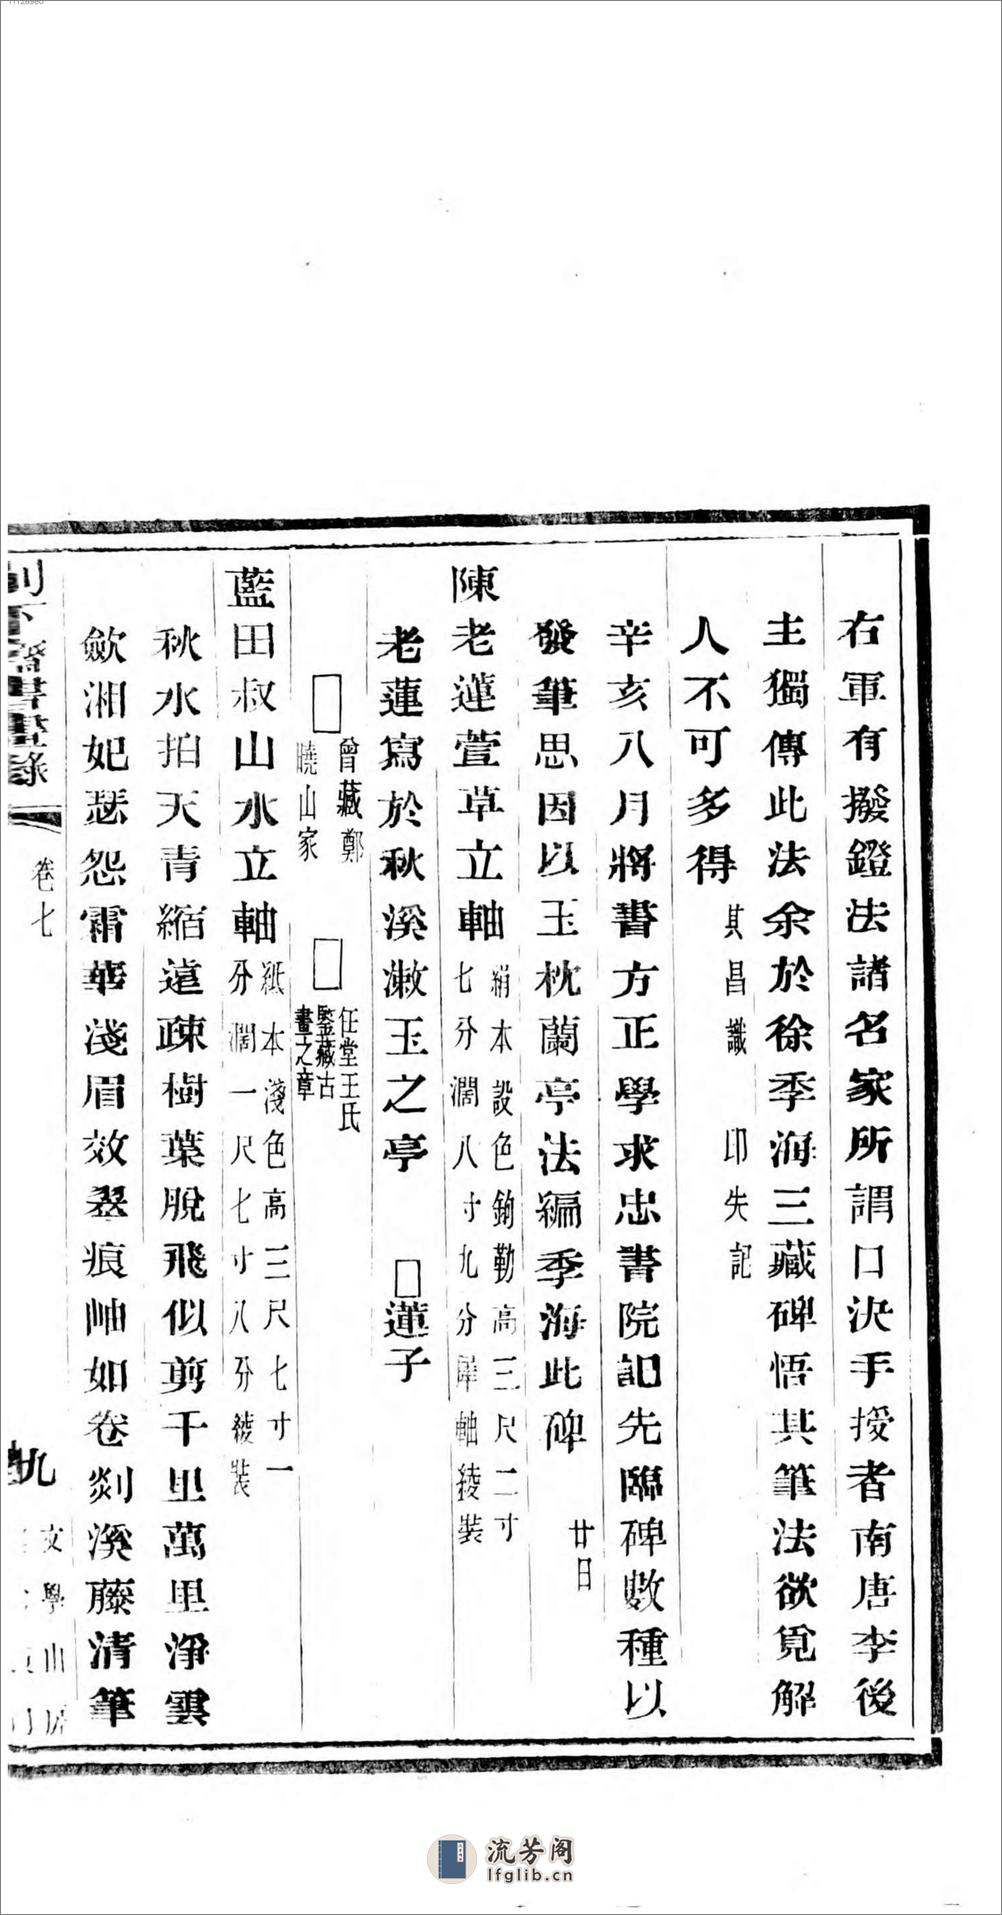 11128960
右軍有撥鐙法諸名家所謂口決手授者南唐李後
主獨傳此法余於徐季海三藏碑悟其筆法欲覓解
人不可多得 其昌識 印失記
辛亥八月將書方正學求忠書院記先臨碑數種以
發筆思因以玉枕蘭亭法編季海此碑 廿日
陳老蓮萱草立軸 絹本設色鉤勒高三尺二寸
七分濶八寸九分 軸綾裝
老蓮寫於秋溪漱玉之亭 □蓮子
□曾藏鄭
曉山家
□任堂王氏
鑒藏古
畫之章
藍田叔山水立軸 紙本淺色高三尺七寸一
分濶一尺七寸八分綾裝
秋水拍天青縮遠疎樹葉脫飛似剪千里萬里淨雲
歛湘妃瑟怨霜華淺眉效翠痕岫如卷剡溪藤清筆
下齋書畫錄
卷七
九
文學山房
流芳阁
lfglib.cn